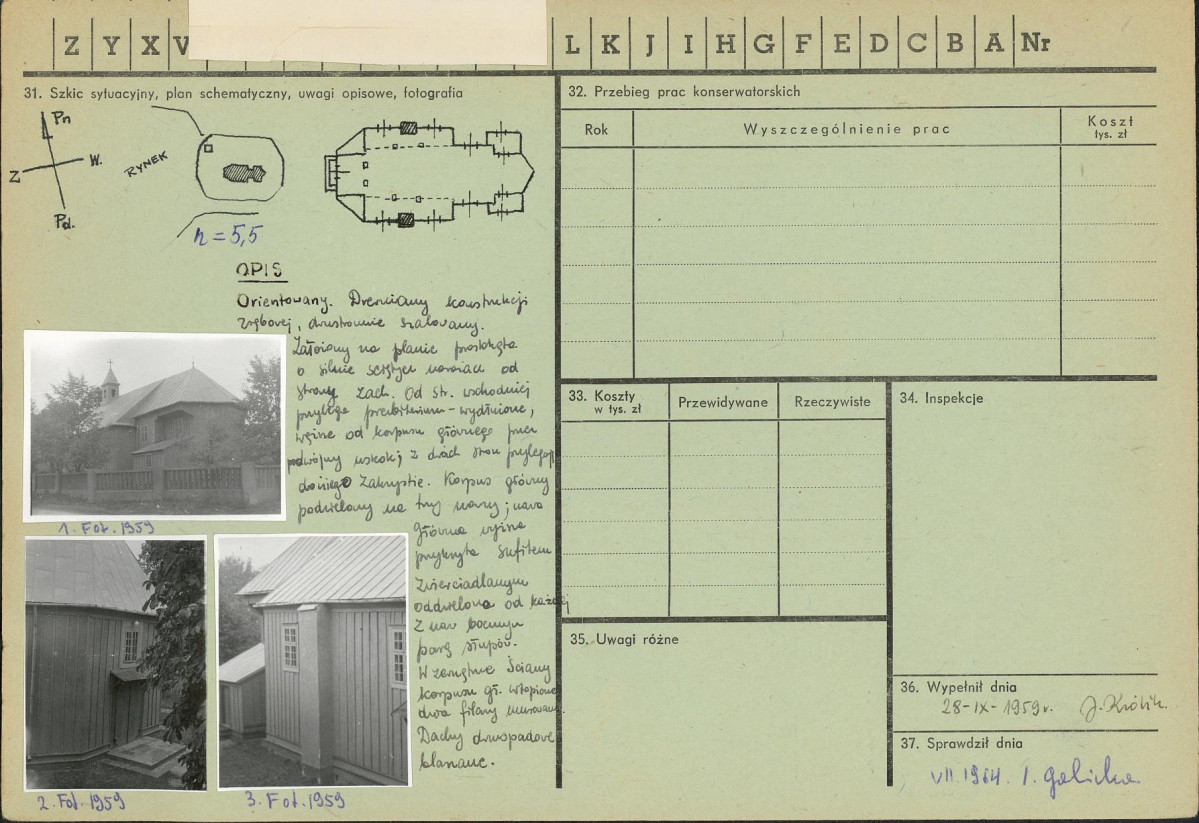 Z Y X L K J I H G F E D C B A Nr
31. Szkic sytuacyjny, plan schematyczny, uwagi opisowe, fotografia
Pn
W.
Z
Pd.
RYNEK
h = 5,5
OPIS
Orientowany. Drewniany konstrukcji
zrębowej, dwustronnie szalowany.
Założony na planie prostokąta
o silnie ściętych narożach od
strony zach. Od str. wschodniej
przylega prezbiterium - wydłużone,
węższe od korpusu głównego przez
podwójny uskok; z dwóch stron przylegają
do niego zakrystie. Korpus główny
podzielony na trzy nawy; nawa
główna wyższa
przykryta sufitem
zwierciadlanym
oddzielona od każdej
z naw bocznych
parą słupów.
W zewnętrzne ściany
korpusu gł. wtopione
dwa filary murowane.
Dachy dwuspadowe
blaszane.
1. Fot. 1959
2. Fot. 1959
3. Fot. 1959
32. Przebieg prac konserwatorskich
Rok
Wyszczególnienie prac
Koszt
tys. zł
33. Koszty
w tys. zł
Przewidywane
Rzeczywiste
34. Inspekcje
35. Uwagi różne
36. Wypełnił dnia
28-IX-1959r. J. Królik
37. Sprawdził dnia
VII 1964. I. Galicka